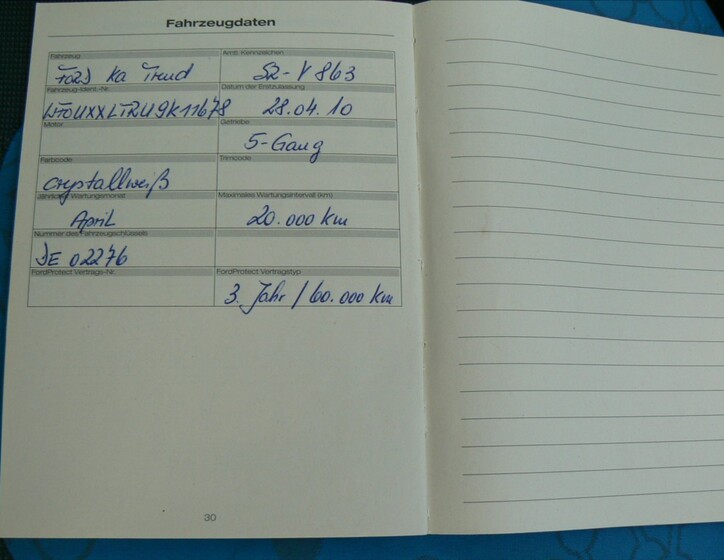 Fahrzeugdaten
Fahrzeug Amtl. Kennzeichen
Ford Ka Trend SZ-V 863
Fahrzeug-Ident.-Nr. Datum der Erstzulassung
28.04.10
Motor Getriebe
5-Gang
Farbcode Trimcode
crystallweiß
Jährlicher Wartungsmonat Maximales Wartungsintervall (km)
April 20.000 km
Nummer des Fahrzeugschlüssels
DE 02276
FordProtect Vertrags-Nr. FordProtect Vertragstyp
3. Jahr / 60.000 km
30